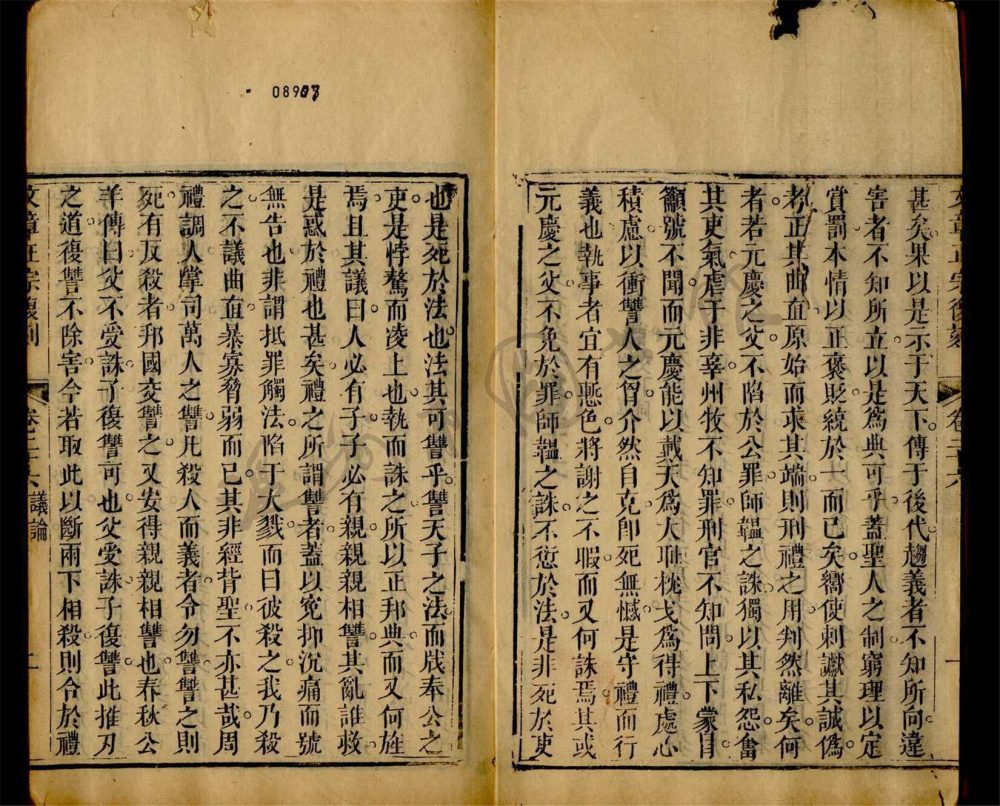 甚矣果以是示于天下傳于後代趨義者不知所向違
害者不知所立以是爲典可乎蓋聖人之制窮理以定
賞罰本情以正褒貶統於一而已矣嚮使刺讞其誠僞
考正其曲直原始而求其端則刑禮之用判然離矣何
者若元慶之父不陷於公罪師韞之誅獨以其私怨奮
其吏氣虐于非辜州牧不知罪刑官不知問上下蒙冒
籲號不聞而元慶能以戴天爲大恥枕戈爲得禮處心
積慮以衝讐人之胷介然自克卽死無憾是守禮而行
義也執事者宜有慙色將謝之不暇而又何誅焉其或
元慶之父不免於罪師韞之誅不愆於法是非死於吏
08903
也是死於法也法其可讐乎讐天子之法而戕奉公之
吏是悖驁而凌上也執而誅之所以正邦典而又何旌
焉且其議曰人必有子子必有親親親相讐其亂誰救
是惑於禮也甚矣禮之所謂讐者蓋以寃抑沉痛而號
無告也非謂抵罪觸法陷于大戮而曰彼殺之我乃殺
之不議曲直暴寡脅弱而已其非經背聖不亦甚哉周
禮調人掌司萬人之讐凡殺人而義者令勿讐讐之則
死有反殺者邦國交讐之又安得親親相讐也春秋公
羊傳曰父不受誅子復讐可也父受誅子復讐此推刃
之道復讐不除害今若取此以斷兩下相殺則合於禮
文章正宗復刻 卷二十六 議論